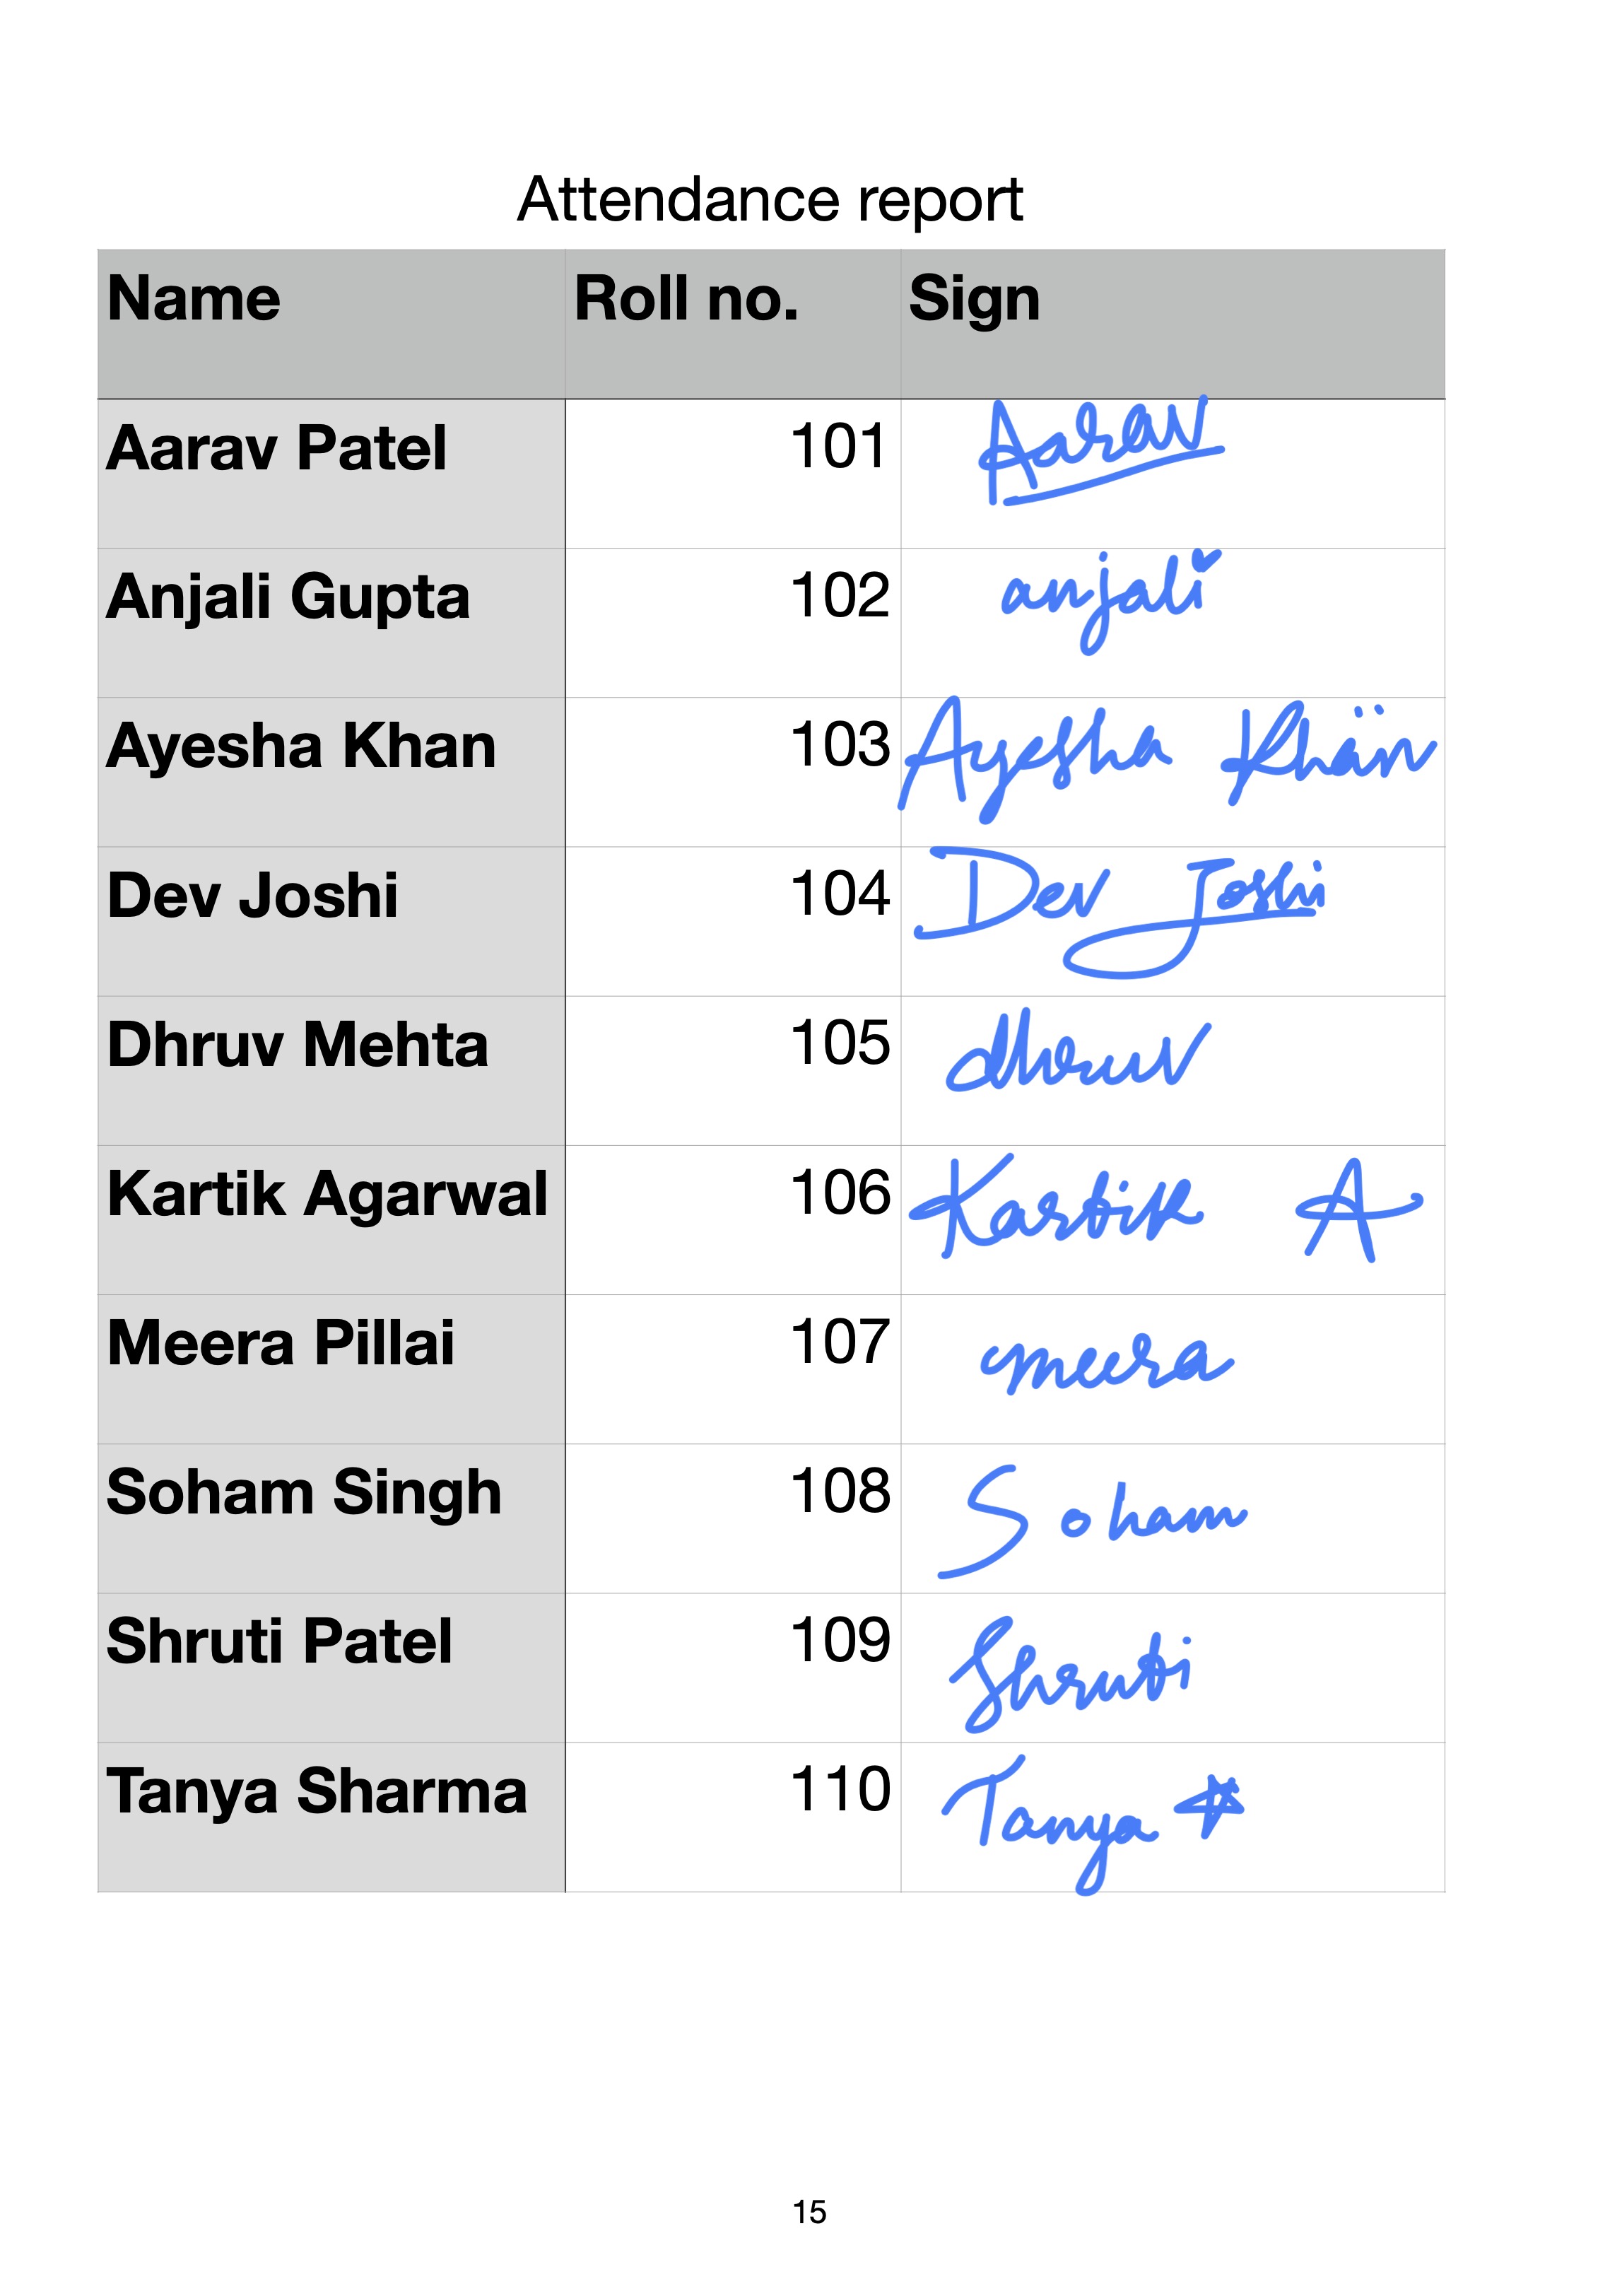 Attendance report
Name Roll no. Sign
Aarav Patel 101 Aarav
Anjali Gupta 102 anjali
Ayesha Khan 103 Ayesha Khan
Dev Joshi 104 Dev Joshi
Dhruv Mehta 105 dhruv
Kartik Agarwal 106 Kartik A
Meera Pillai 107 meera
Soham Singh 108 Soham
Shruti Patel 109 Shruti
Tanya Sharma 110 Tanya
15